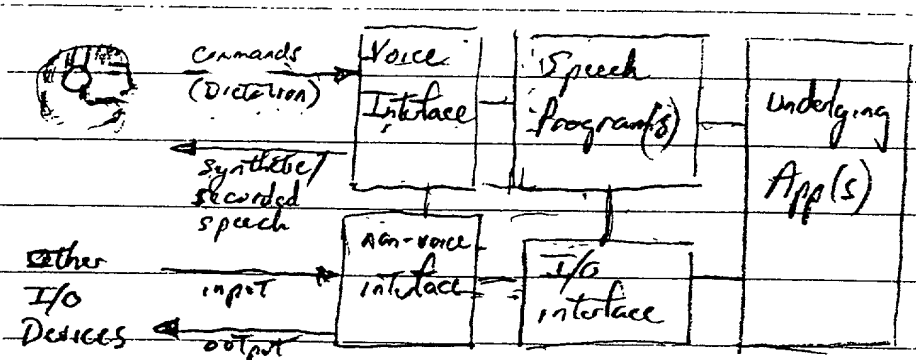 Commands
(Dictation)
Voice
Interface
Speech
Program(s)
underlying
App(s)
synthetic/
recorded
speech
Other
I/O
Devices
input
output
non-voice
interface
I/O
interface